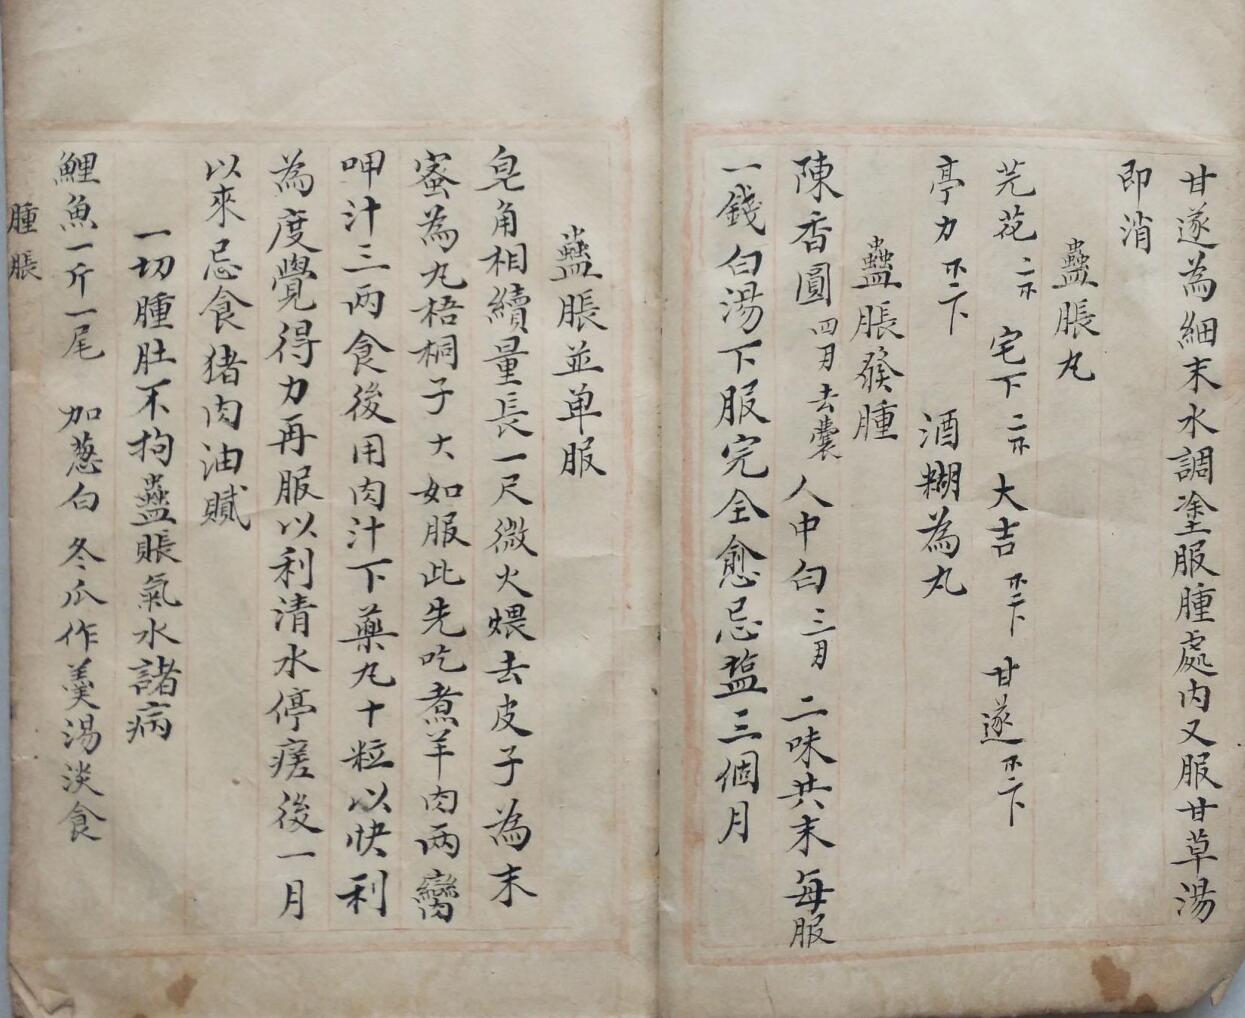 甘遂為細末水調塗服腫處內又服甘草湯
即消
蠱脹丸
芫花 二不 宅下 二不 大吉 不二下 甘遂 不二下
亭力 不二下 酒糊為丸
蠱脹發腫
陳香圓 四月 去囊 人中白 三月 二味共末每服
一錢白湯下服完全愈忌盬三個月
蠱脹並单服
皂角相續量長一尺微火煨去皮子為末
蜜為丸梧桐子大如服此先吃煮羊肉两臠
呷汁三两食後用肉汁下藥丸十粒以快利
為度覺得力再服以利清水停瘥後一月
以來忌食猪肉油膩
一切腫肚不拘蠱脹氣水諸病
鯉魚一斤一尾 加葱白 冬瓜作羹湯淡食
腫脹